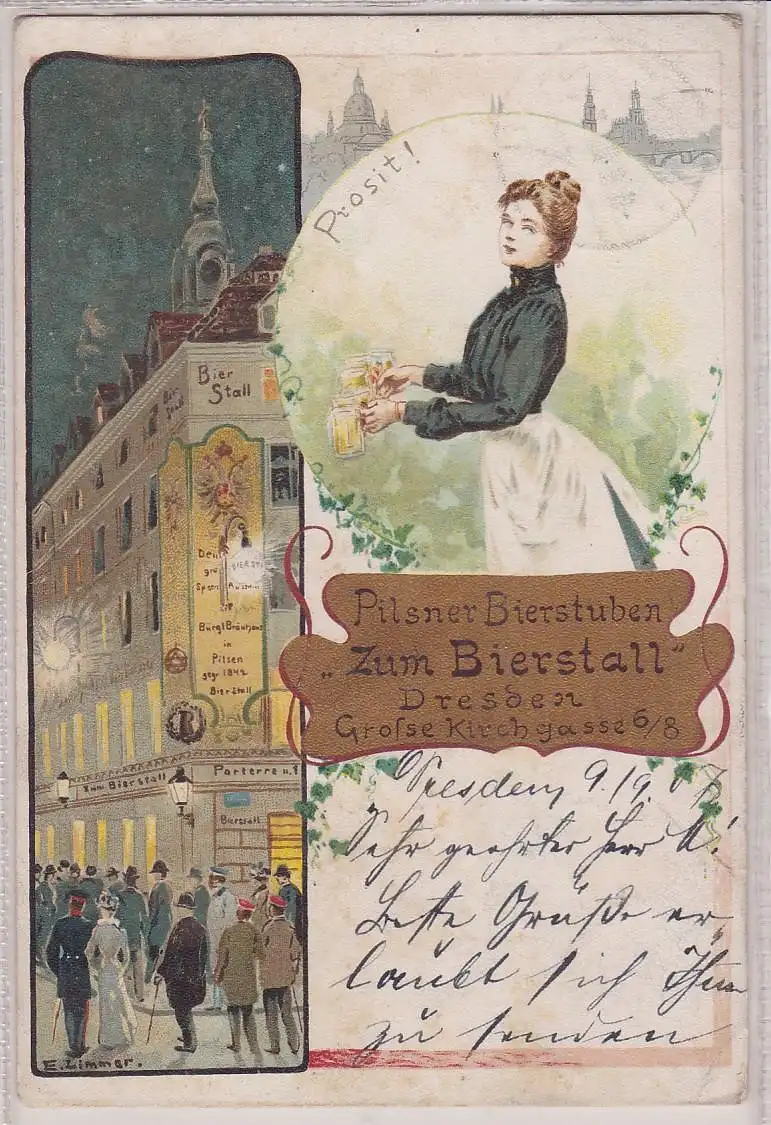 Prosit!
Bier
Stall
BIERST
Bürgl Bräuhaus
in
Pilsen
gegr 1842
Bierstall
Zum Bierstall
Parterre u. 1
Bierstall
Pilsner Bierstuben
„Zum Bierstall"
Dresden
Grosse Kirchgasse 6/8
Dresden, 9./9. 07
Sehr geehrter Herr K!
Beste Grüße er-
laubt sich Ihnen
zu senden
E. Zimmer.